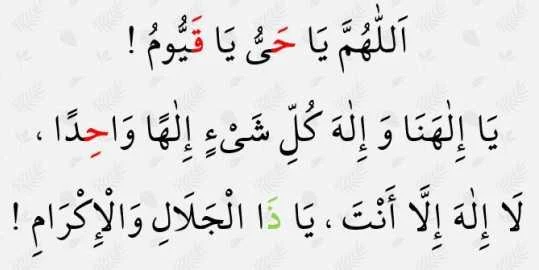 اَللّٰهُمَّ يَا حَىُّ يَا قَيُّومُ !
يَا إِلٰهَنَا وَ إِلٰهَ كُلِّ شَىْءٍ إِلٰهًا وَاحِدًا ،
لَا إِلٰهَ إِلَّا أَنْتَ ، يَا ذَا الْجَلَالِ وَالْإِكْرَامِ !